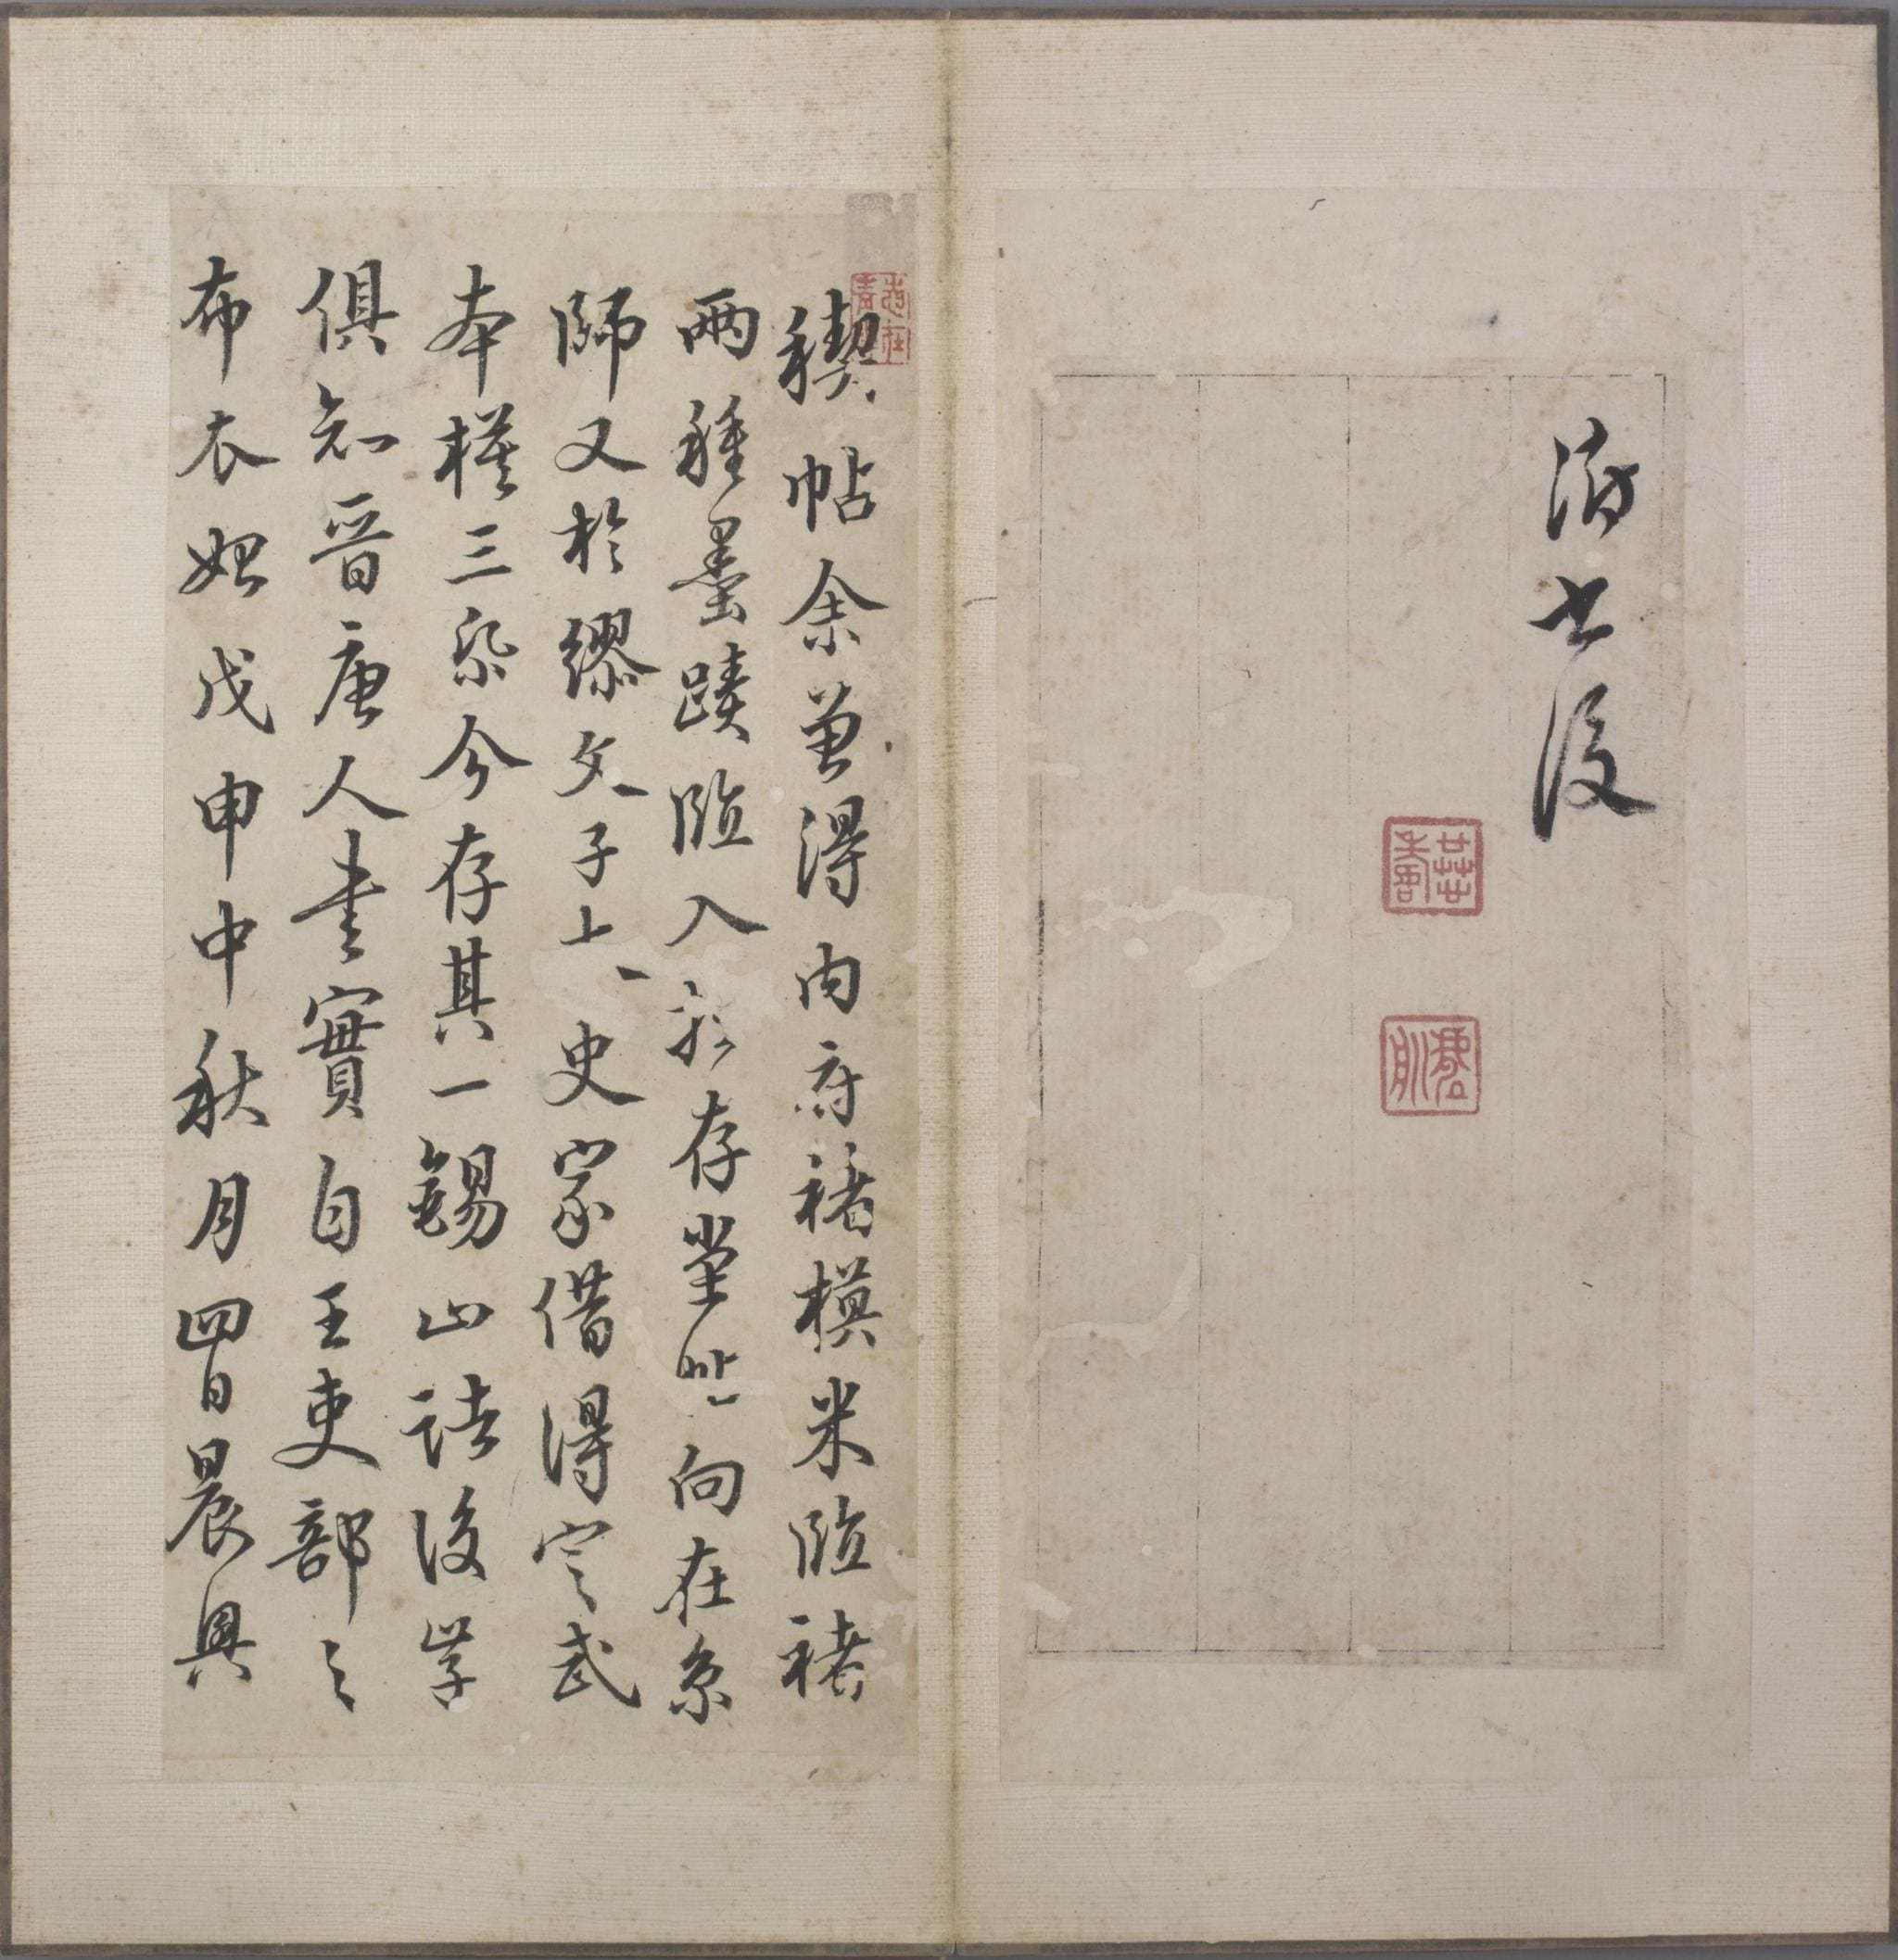 後
禊帖余曾得内府褚模米臨褚
兩種墨蹟臨入存堂此向在京
師又於繆文子太史家借得定武
本模三今存其一錫山諸後學
俱知晉唐人書實自王吏部之
布衣始戊申中秋月四日晨興